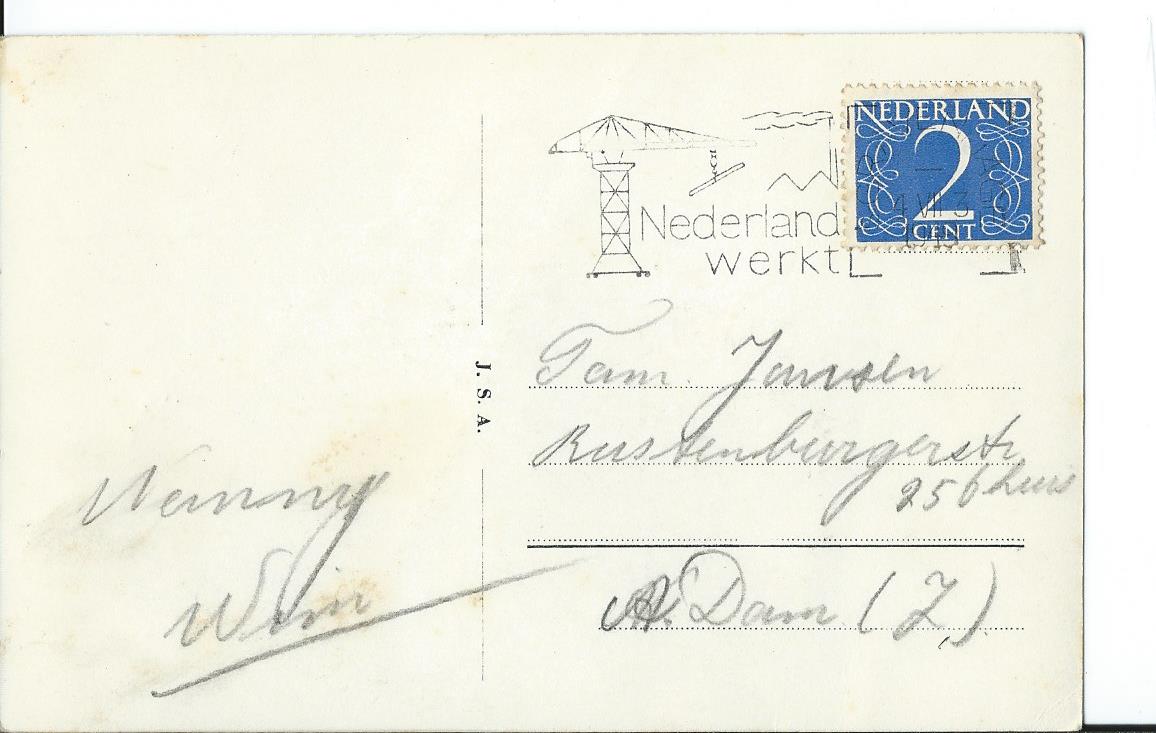 NEDERLAND
2
CENT
4 VII 3
Nederland
werkt
J. S. A.
Fam. Jansen
Rustenburgerstr
256 huis
A. Dam (Z.)
Nanny
Wim